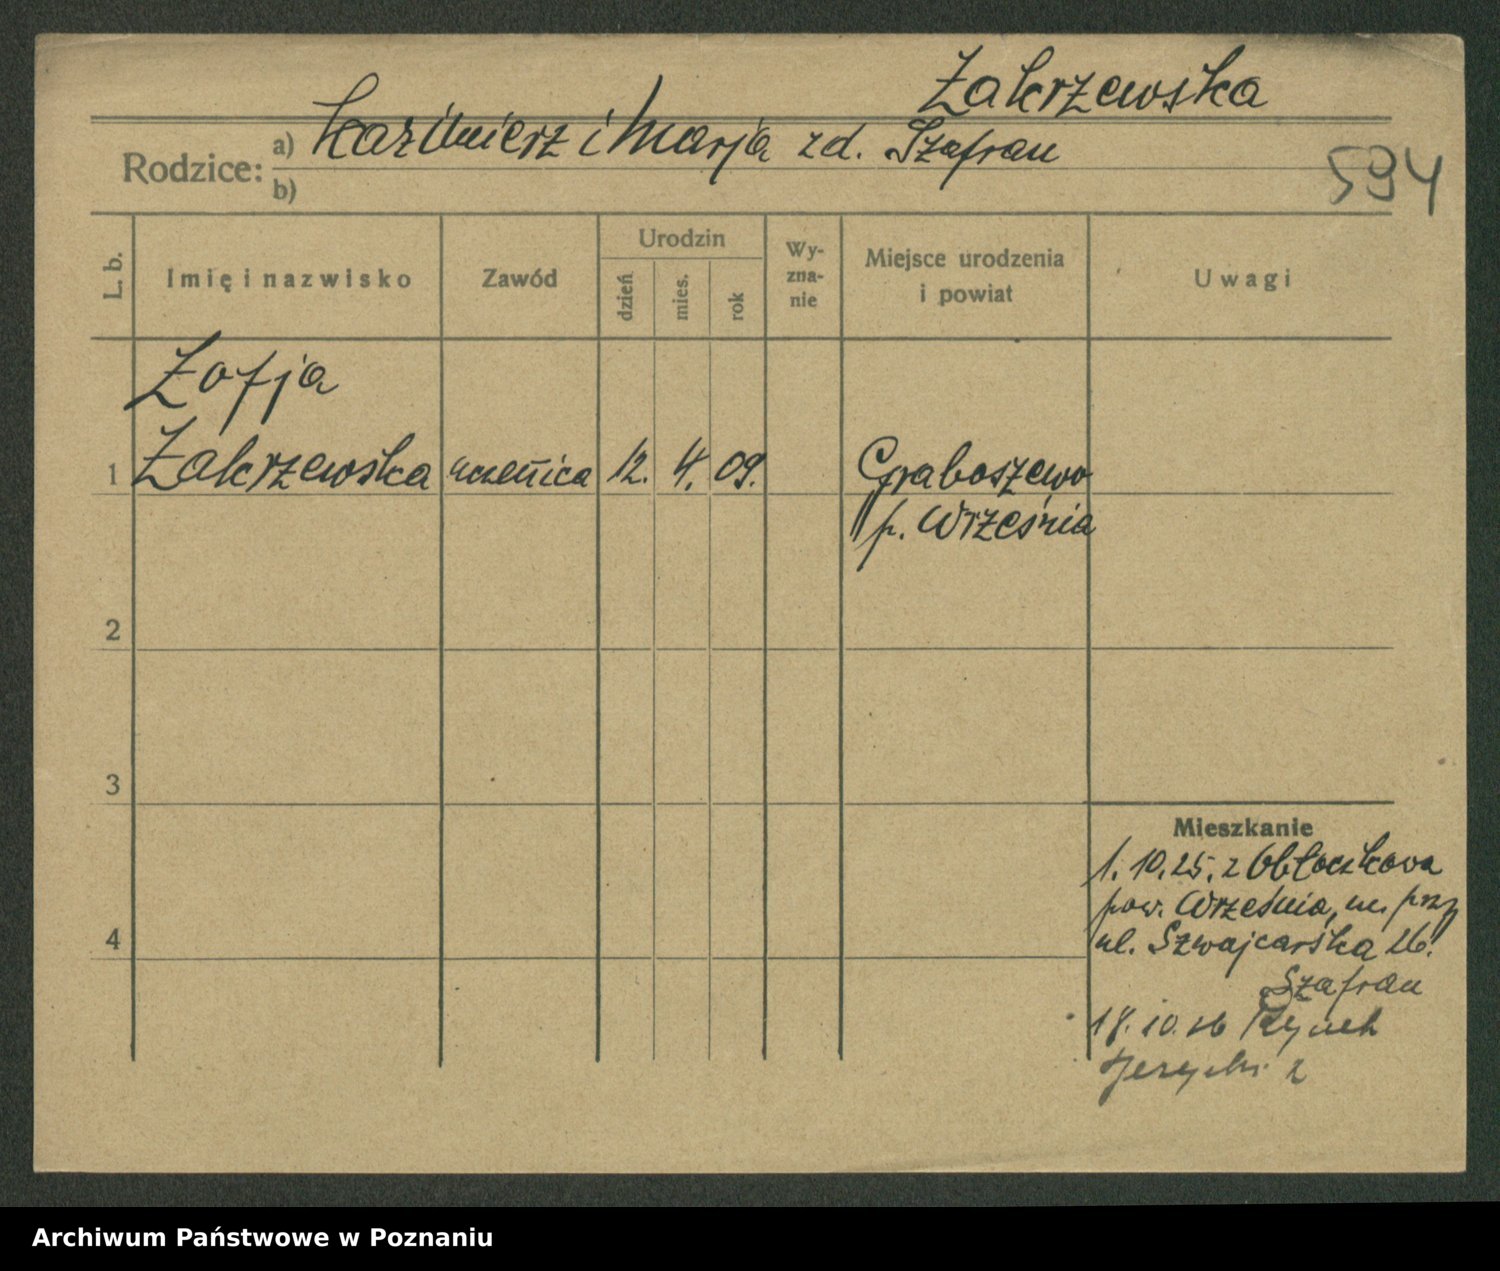 Zakrzewska
Rodzice: a) Kazimierz i Marja zd. Szafran
b)
594
L. b. Imię i nazwisko Zawód Urodzin dzień mies. rok Wy-zna-nie Miejsce urodzenia i powiat Uwagi
Zofja
1 Zakrzewska uczenica 12. 4. 09. Graboszewo
p. Września
2
3
Mieszkanie
1. 10. 25. z Obłaczkowa
pow. Września, m. przy
4 ul. Szwajcarska 26.
Szafran
18. 10. 26 Rynek
Jerzycki 2
Archiwum Państwowe w Poznaniu